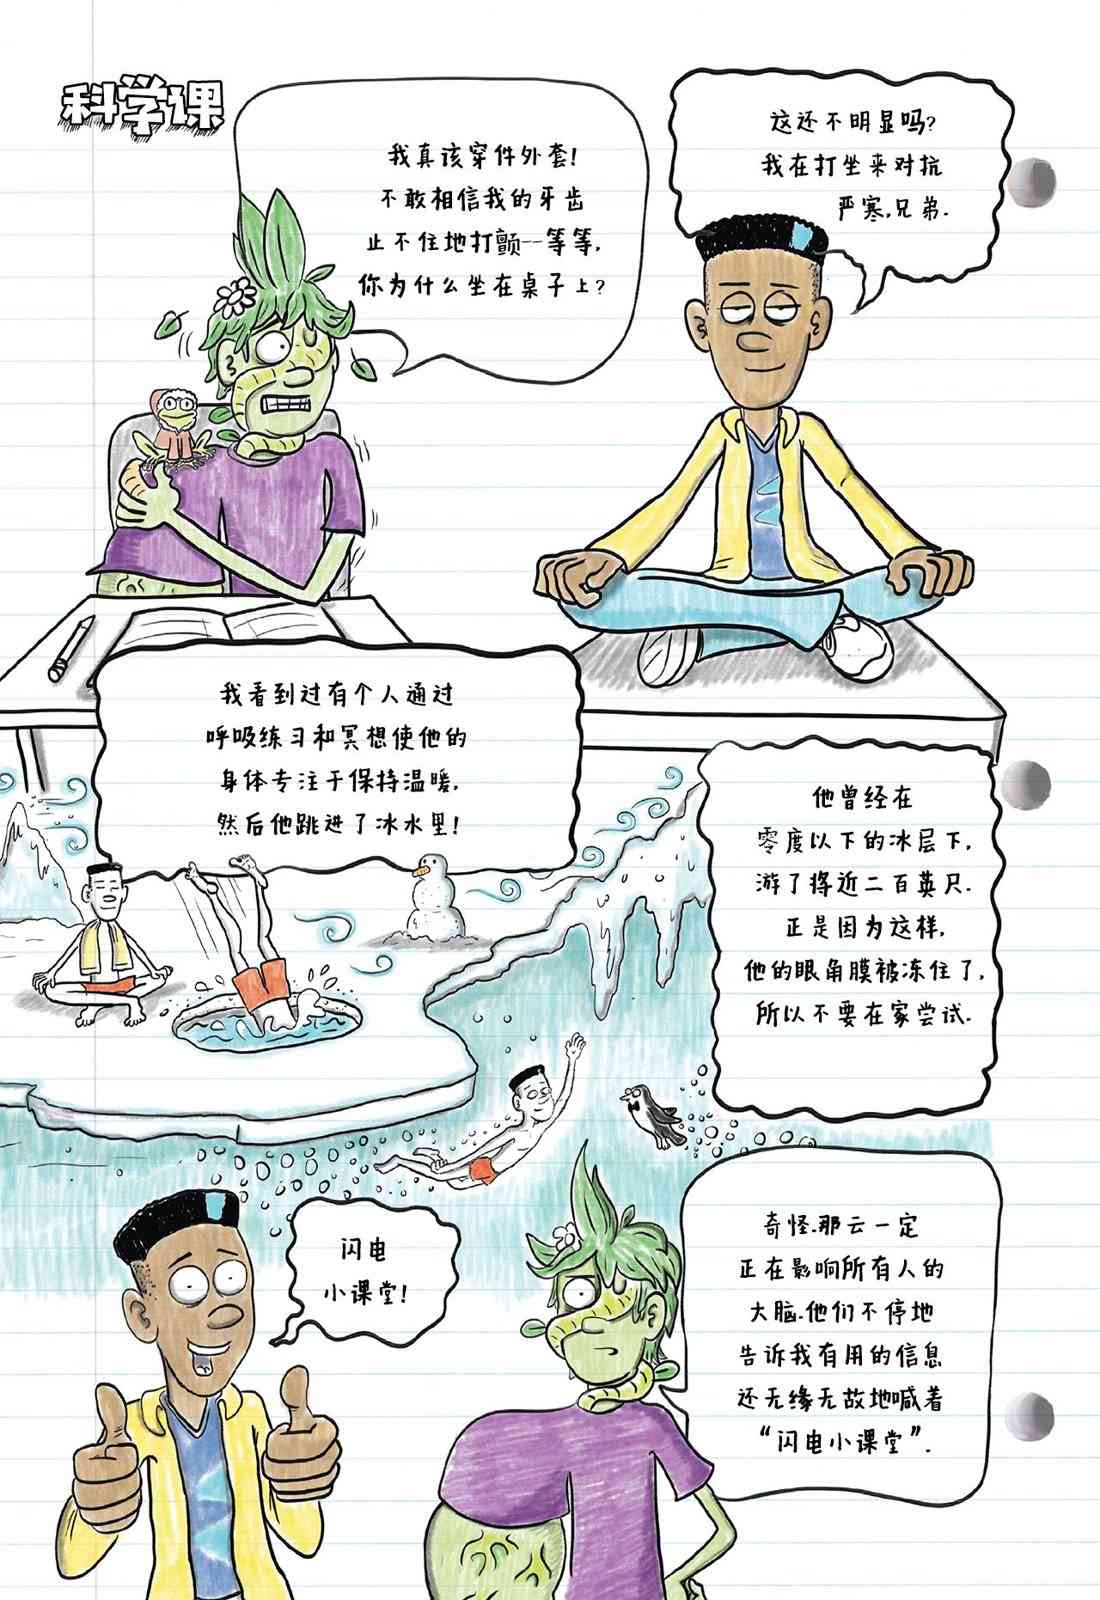 科学课
我真该穿件外套!
不敢相信我的牙齿
止不住地打颤--等等,
你为什么坐在桌子上?
这还不明显吗?
我在打坐来对抗
严寒,兄弟.
我看到过有个人通过
呼吸练习和冥想使他的
身体专注于保持温暖,
然后他跳进了冰水里!
他曾经在
零度以下的冰层下,
游了将近二百英尺.
正是因为这样,
他的眼角膜被冻住了,
所以不要在家尝试.
闪电
小课堂!
奇怪.那云一定
正在影响所有人的
大脑.他们不停地
告诉我有用的信息
还无缘无故地喊着
“闪电小课堂”.